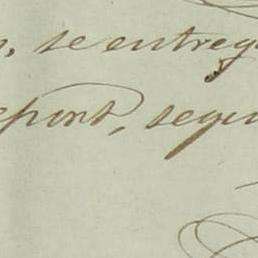 , se entreg
epint, segu